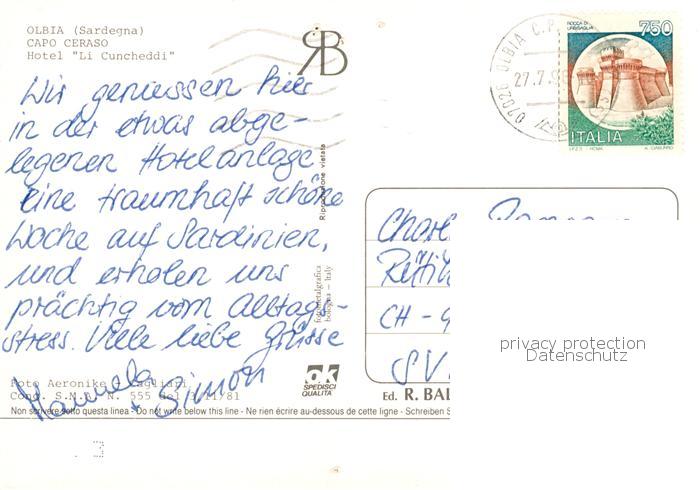 OLBIA (Sardegna)
CAPO CERASO
Hotel "Li Cuncheddi"
Wir geniessen hier
in der etwas abge-
legenen Hotelanlage
eine traumhaft schöne
Woche auf Sardinien,
und erholen uns
prächtig vom Alltags-
stress. Viele liebe Grüsse
Manuela
+ Simon
Foto Aeronike - Cagliari
Conc. S.M.A. N. 555 del
Non scrivere sotto questa linea - Do not write below this line - Ne rien écrire au-dessous de cette ligne - Schreiben S
3
RB
Riproduzione vietata
fotometalgrafica
bologna - Italy
OK
SPEDISCI
QUALITA'
07026 OLBIA C.P.
27.7.9
ROCCA DI
URBISAGLIA
750
ITALIA
I.P.Z.S. - ROMA
Rüti
CH - 9
SV
Ed. R. BAL
privacy protection
Datenschutz